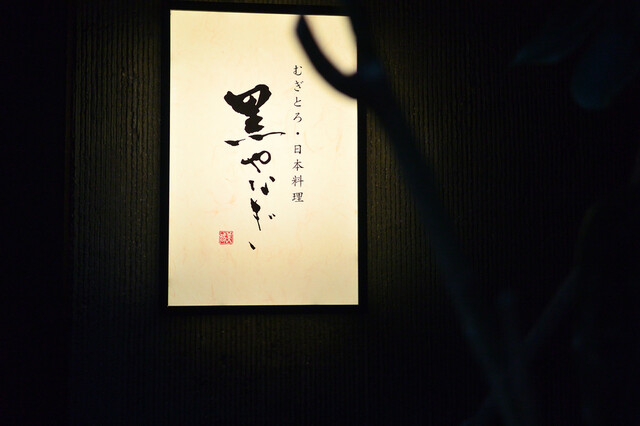 むぎとろ・日本料理
黒やなぎ